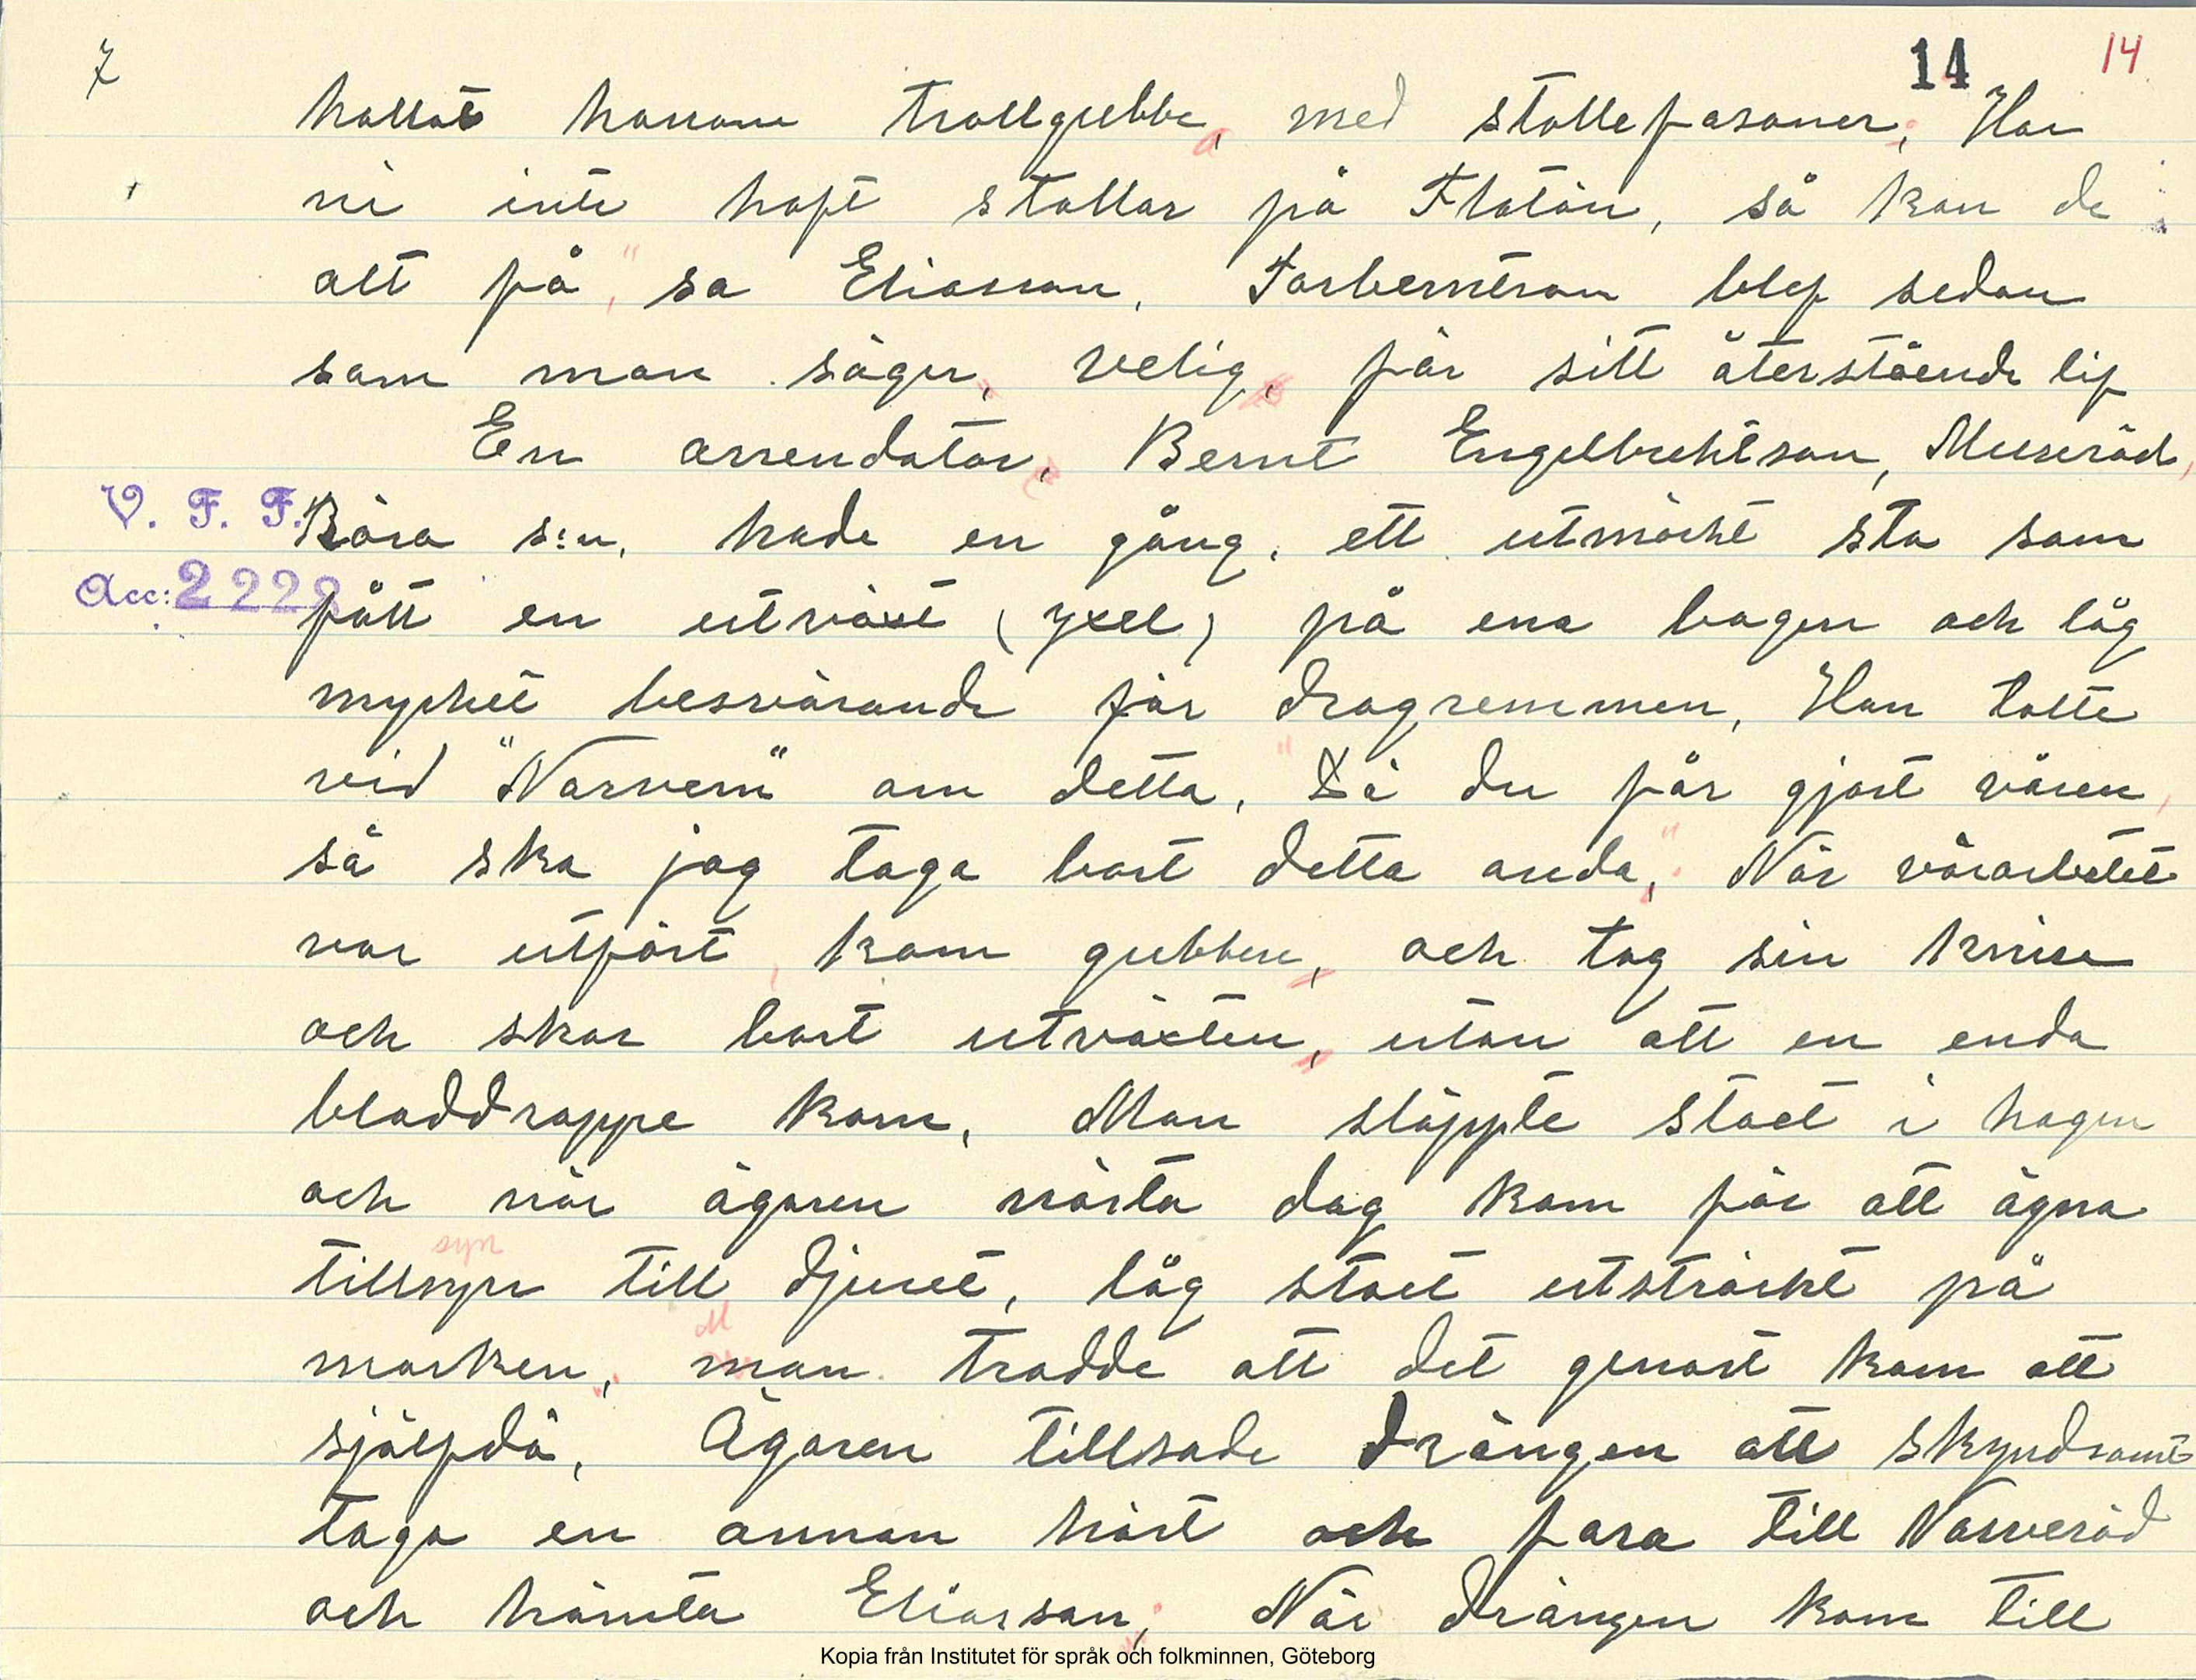 7
14
14
kallat honom trollgubbe, med stollefasoner, Har
ni inte haft stollar på Flatön, så kan de
att få," sa Eliasson. Torberntson blef sedan
som man säger, velig, för sitt återstående lif
En arrendator, Bernt Engelbrektson, Museröd,
V. F. F. Röra s:n, hade en gång, ett utmärkt sto som
Acc: 2222 fått en utväxt (yxel) på ena bogen och låg
mycket besvärande för dragremmen, Han talte
vid "Narvern" om detta, "Lå du får gjort våren,
så ska jag taga bort detta onda," När vårarbetet
var utfört, kom gubben, och tog sin kniv
och skar bort utväxten, utan att en enda
bloddroppe kom, Man släppte stoet i hagen
och när ägaren nästa dag kom för att ägna
syn
tillsyn till djuret, låg stoet utsträckt på
M
marken, man trodde att det genast kom att
självdö, Ägaren tillsade drängen att skyndsamt
taga en annan häst och fara till Narveröd
och hämta Eliasson, När drängen kom till
Kopia från Institutet för språk och folkminnen, Göteborg